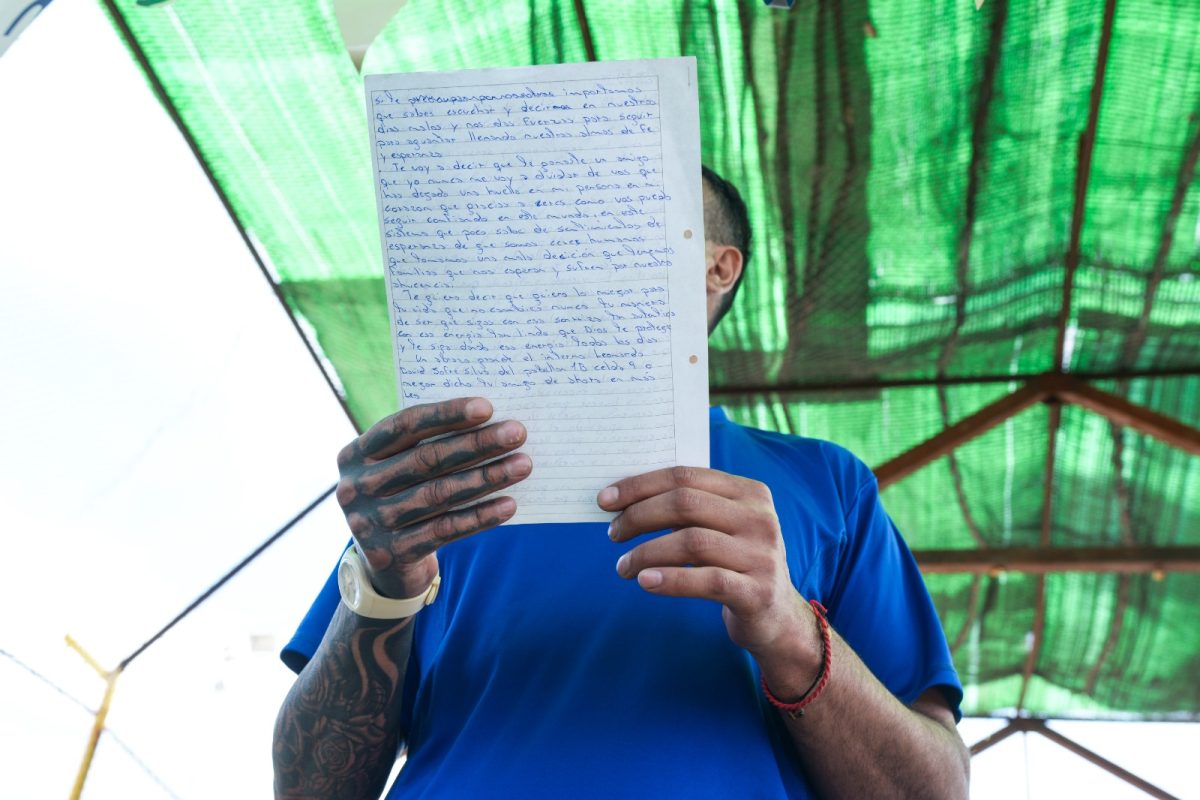 si te preocupas por nosotros importamos
que sabes escuchar y decirnos en nuestros
dias malos y nos das fuerzas para seguir
para aguantar llenando nuestras almas de fe
y esperanza
Te voy a decir que te ganaste un amigo
que yo nunca me voy a olvidar de vos que
has dejado una huella en mi persona en mi
corazon que preciso a ceres como vos puedo
seguir confiando en este mundo, en este
sistema que poco sabe de sentimientos de
esperanzas de que somos ceres humanos
que tomamos una mala decición que tenemos
familias que nos esperan y sufren por nuestra
ahucencia.
Te quiero decir que quiero lo mejor para
tu vida que no cambies nunca tu manera
de ser que sigas con esa sonrriza tan autentica
con esa energia tan linda que Dios te protega
y te siga dando esa energia todos los dias
Un abrazo grande el interno Leonardo
David Sofre Silva del pabellon 1D celda 9 o
mejor dicho tu amigo de ahora en mas
Leo